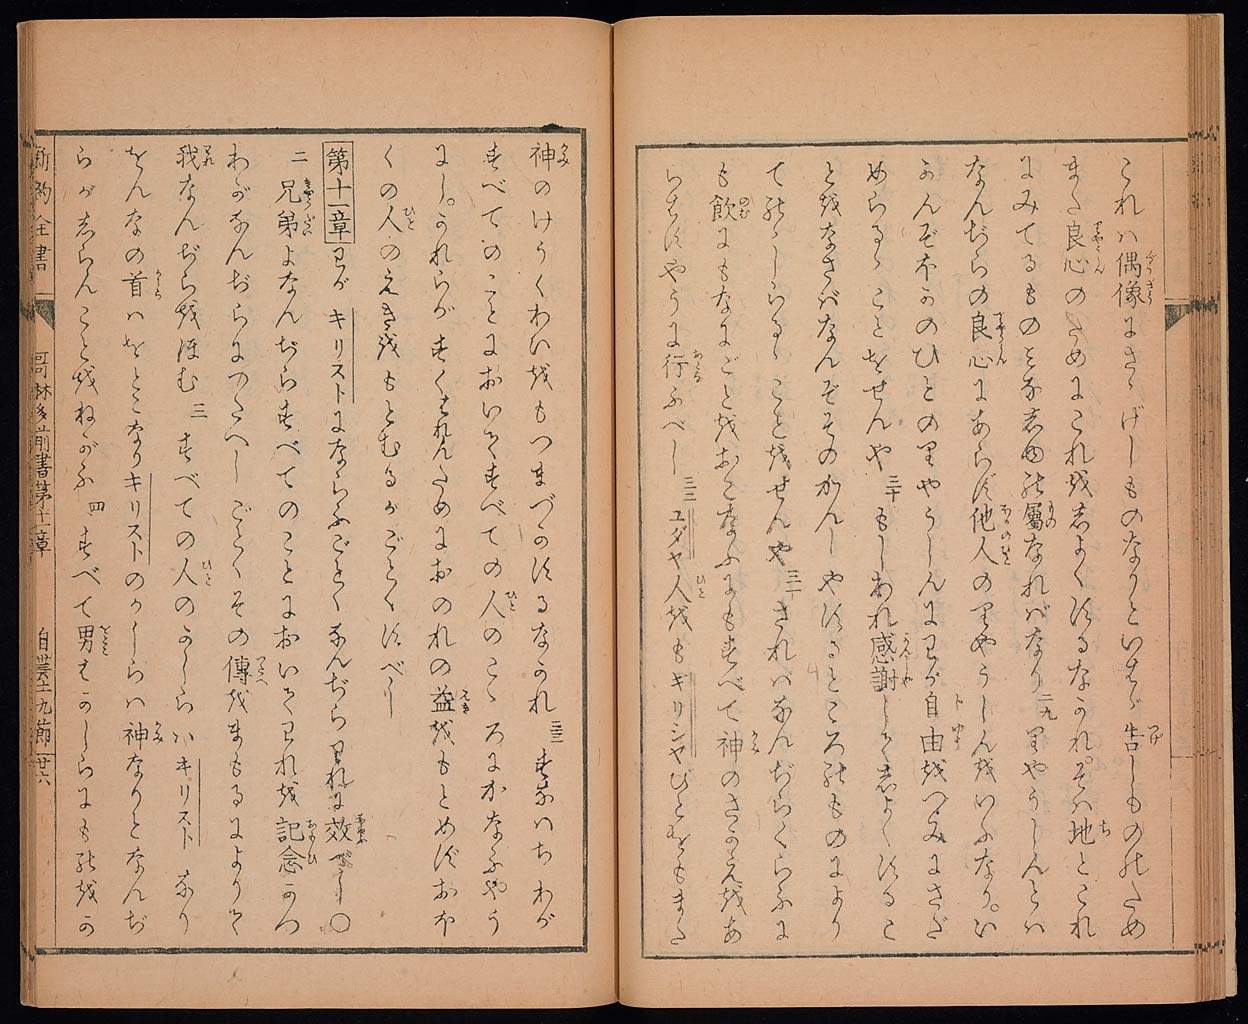 これハ偶像にさゝげしものなりといはゞ告しもののため
また良心のためにこれをしよくするなかれそハ地とこれ
にみてるものとみな主の屬なればなり 二九 りやうしんとハ
なんぢらの良心にあらず他人のりやうしんをいふなり。い
かんぞほかのひとのりやうしんにわが自由をつみにさだ
めらるゝことをせんや 三十 もしわれ感謝してしよくするこ
とをなさばなんぞそのかんしやするところのものにより
てのゝしらるゝことをせんや 三一 されハなんぢらくらふに
も飲にもなにごとをおこなふにもすべて神のさかえをあ
らはすやうに行ふべし 三二 ユダヤ人をもギリシヤびとをもまた
神のけうくわいをもつまづかするなかれ 三三 すなハちわが
すべてのことにおいてすべての人のこゝろにかなふやう
にし。かれらがすくはれんためにおのれの益をもとめずおほ
くの人のえきをもとむるがごとくすべし
第十一章 わが キリスト にならふごとくなんぢらわれに效べし ○
二 兄弟よなんぢらすべてのことにおいてわれを記念かつ
わがなんぢらにつたへしごとくその傳をまもるによりて
我なんぢらをほむ 三 すべての人のかしらハ キリスト なり
をんなの首ハをとこなりキリストのかしらハ神なりとなんぢ
らがしらんことをねがふ 四 すべて男はかしらにものをか
新約全書 哥林多前書第十一章 九節 廿六